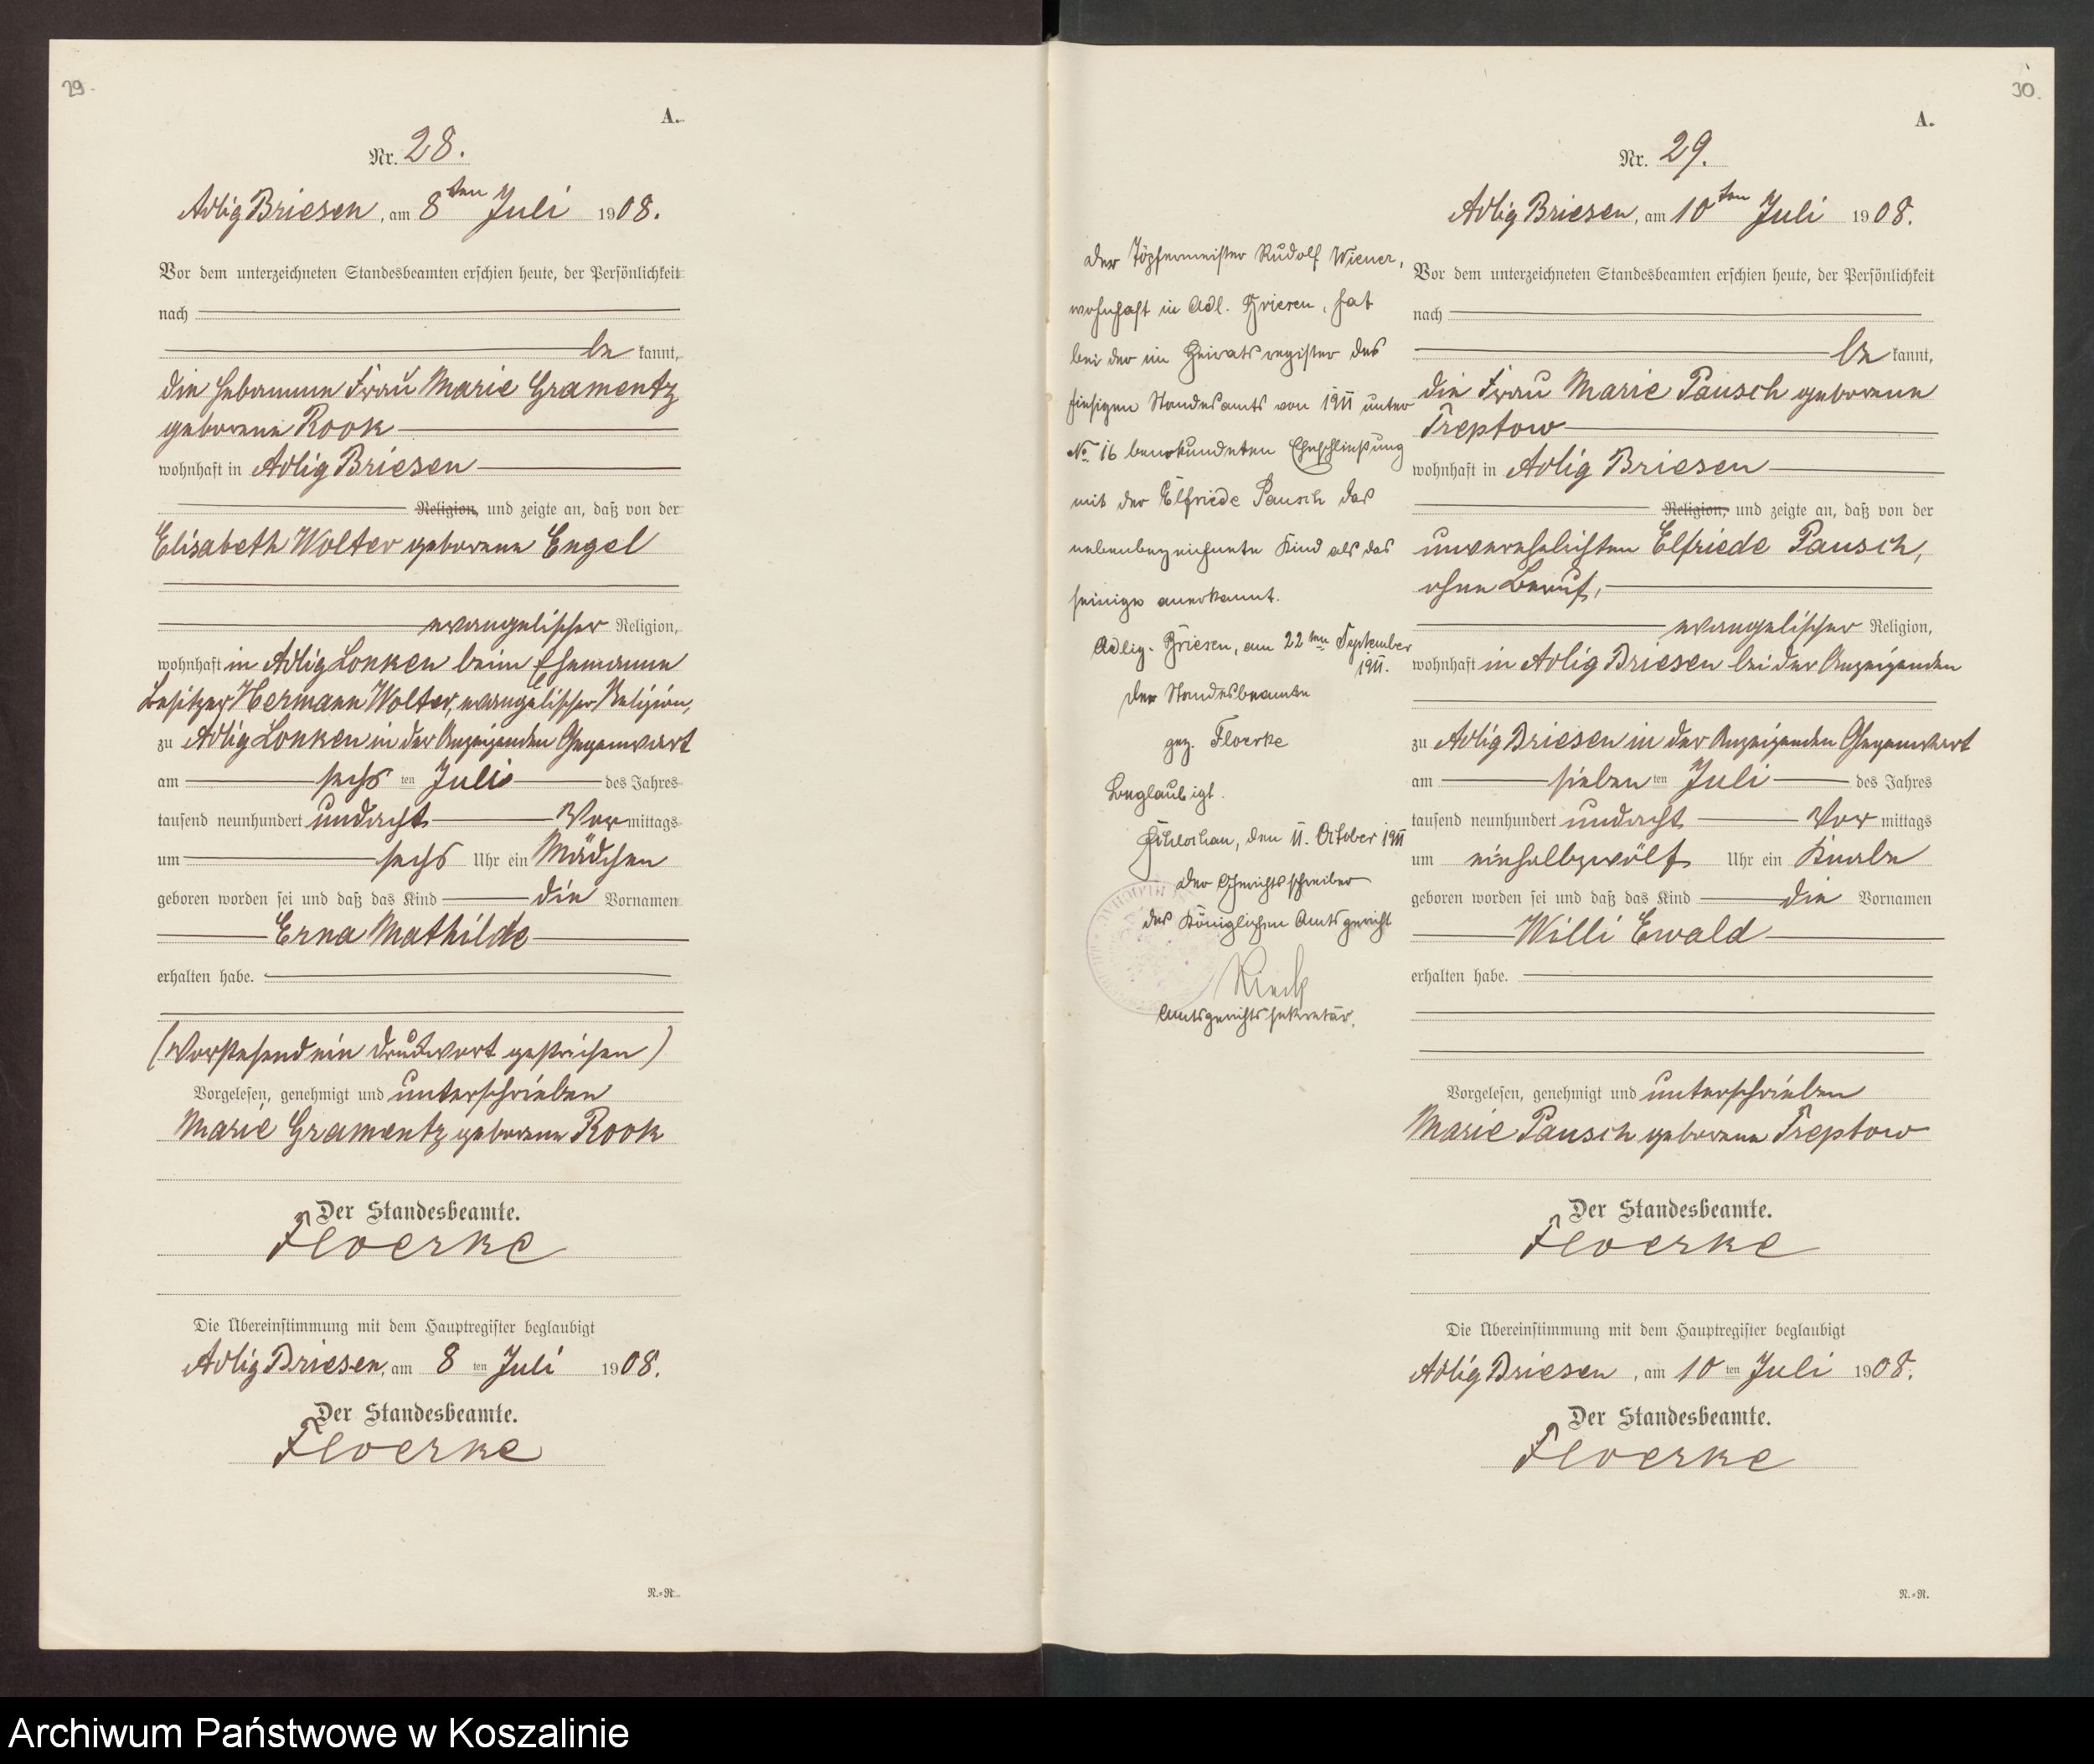 29.
A.
Nr. 28.
Adlig Briesen, am 8ten Juli 1908.
Vor dem unterzeichneten Standesbeamten erschien heute, der Persönlichkeit
nach
be kannt,
die Hebamme Frau Marie Gramentz
geborene Rook
wohnhaft in Adlig Briesen
Religion, und zeigte an, daß von der
Elisabeth Wolter geborene Engel
evangelischer Religion,
wohnhaft in Adlig Lonken beim Ehemanne
Besitzer Hermann Wolter, evangelischer Religion,
zu Adlig Lonken in der Anzeigenden Gegenwart
am sechs ten Juli des Jahres
tausend neunhundert undacht Vor mittags
um sechs Uhr ein Mädchen
geboren worden sei und daß das Kind die Vornamen
Erna Mathilde
erhalten habe.
(Vorstehend ein Druckwort gestrichen)
Vorgelesen, genehmigt und unterschrieben
Marie Gramentz geborene Rook
Der Standesbeamte.
Floerke
Die Übereinstimmung mit dem Hauptregister beglaubigt
Adlig Briesen, am 8 ten Juli 1908.
Der Standesbeamte.
Floerke
N.=R.
30.
A.
Nr. 29.
Adlig Briesen, am 10ten Juli 1908.
Vor dem unterzeichneten Standesbeamten erschien heute, der Persönlichkeit
nach
be kannt,
die Frau Marie Pausch geborene
Treptow
wohnhaft in Adlig Briesen
Religion, und zeigte an, daß von der
unverehelichten Elfriede Pausch,
ohne Beruf,
evangelischer Religion,
wohnhaft in Adlig Briesen bei der Anzeigenden
zu Adlig Briesen in der Anzeigenden Gegenwart
am sieben ten Juli des Jahres
tausend neunhundert undacht Vor mittags
um einhalbzwölf Uhr ein Knabe
geboren worden sei und daß das Kind die Vornamen
Willi Ewald
erhalten habe.
Vorgelesen, genehmigt und unterschrieben
Marie Pausch geborene Treptow
Der Standesbeamte.
Floerke
Die Übereinstimmung mit dem Hauptregister beglaubigt
Adlig Briesen, am 10 ten Juli 1908.
Der Standesbeamte.
Floerke
N.=R.
Der Töpfermeister Rudolf Wiener,
wohnhaft in Adl. Briesen, hat
bei der im Heiratsregister des
hiesigen Standesamts von 1911 unter
No 16 beurkundeten Eheschließung
mit der Elfriede Pausch das
nebenbezeichnete Kind als das
seinige anerkannt.
Adlig. Briesen, am 22ten September
1911.
Der Standesbeamte
gez. Floerke
Beglaubigt.
Schlochau, den 11. October 1911
Der Gerichtsschreiber
des Königlichen Amtsgericht
Amtsgerichtssekretär.
Archiwum Państwowe w Koszalinie